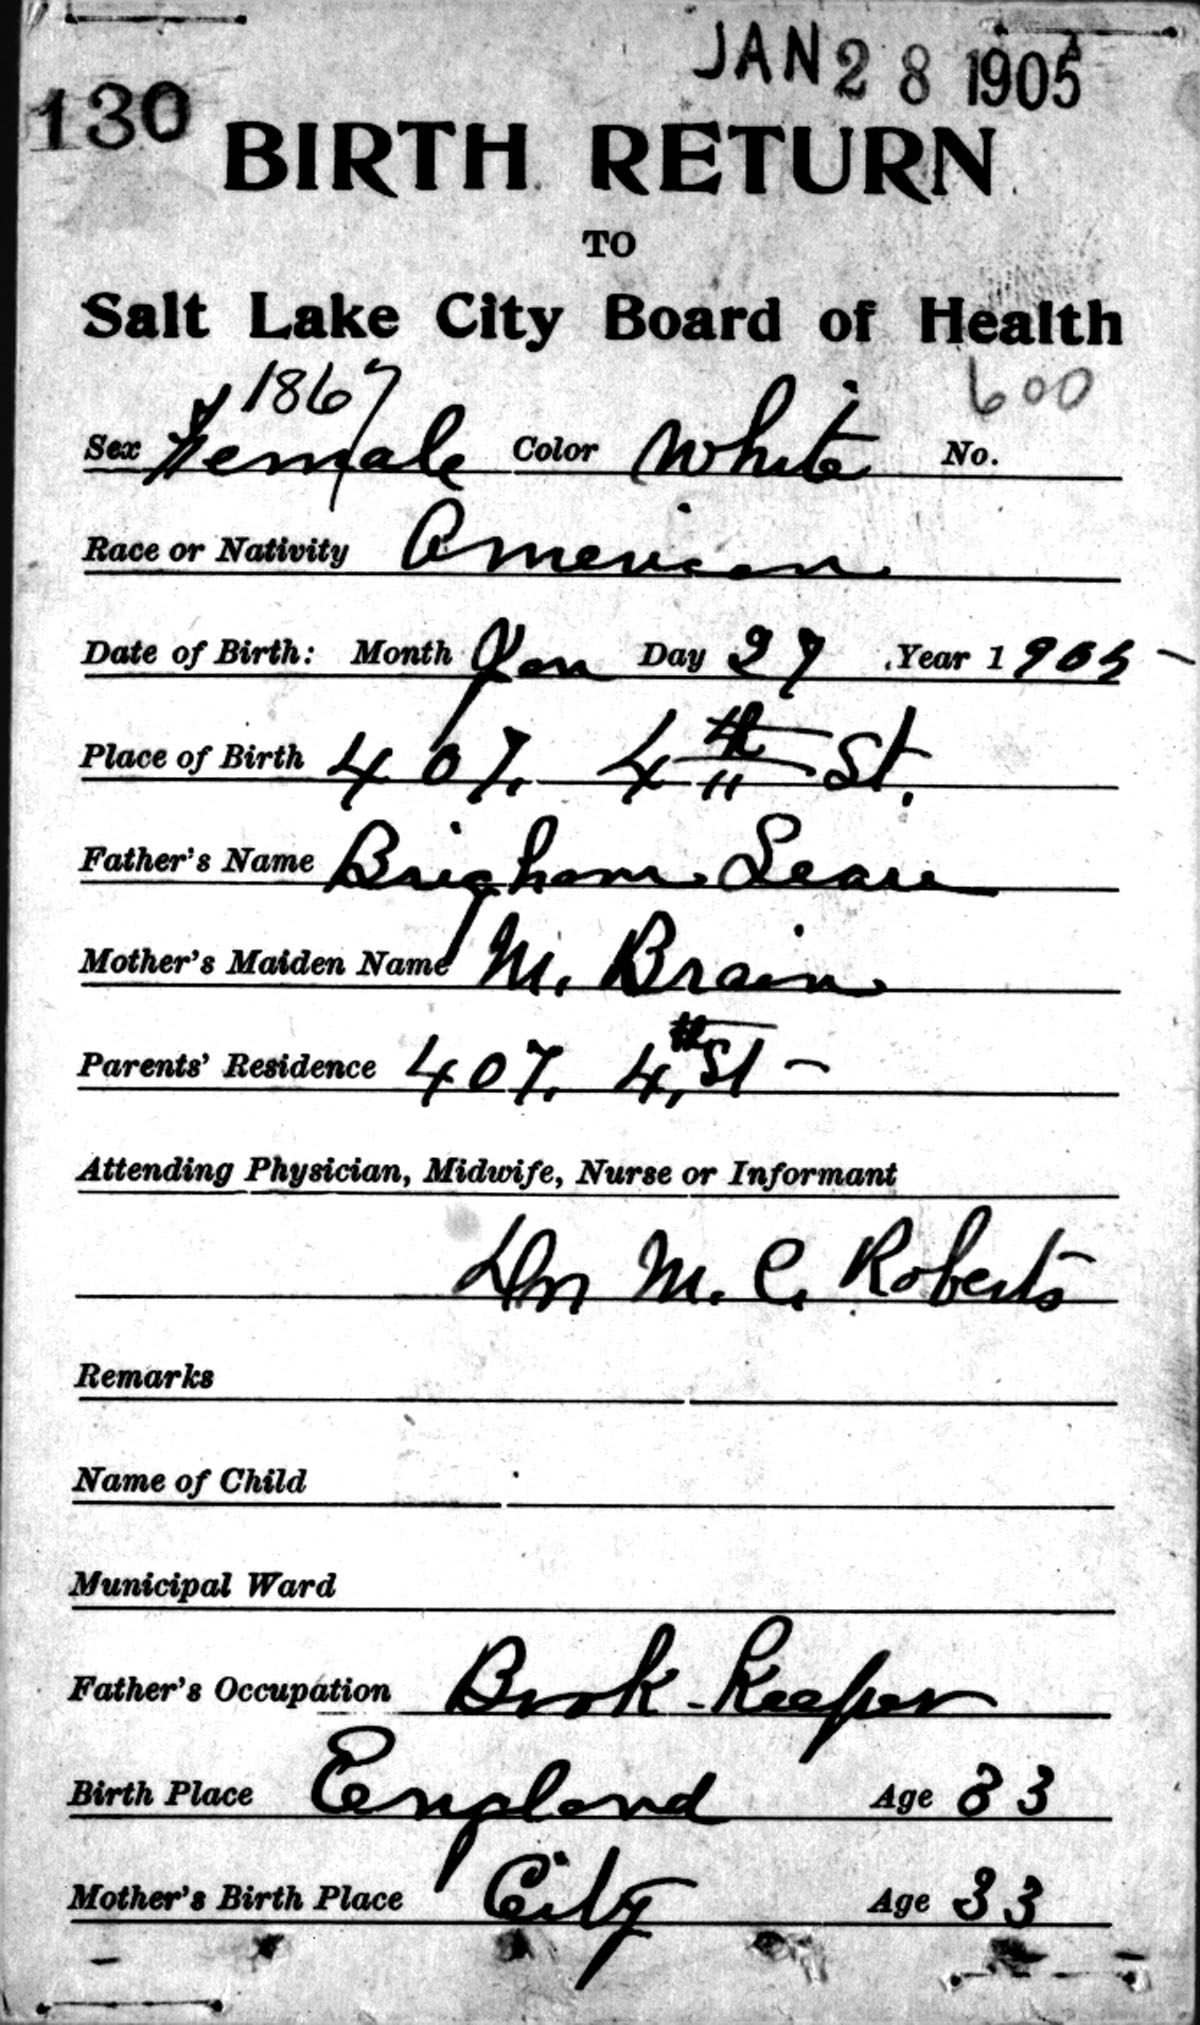 JAN 28 1905
130
BIRTH RETURN
TO
Salt Lake City Board of Health
1867 600
Sex Female Color White No.
Race or Nativity American
Date of Birth: Month Jan Day 27 Year 1905
Place of Birth 407. 4th St.
Father's Name Brigham
Mother's Maiden Name M. Brain
Parents' Residence 407. 4th St
Attending Physician, Midwife, Nurse or Informant
Dr M. C. Roberts
Remarks
Name of Child
Municipal Ward
Father's Occupation Book-keeper
Birth Place England Age 33
Mother's Birth Place City Age 33